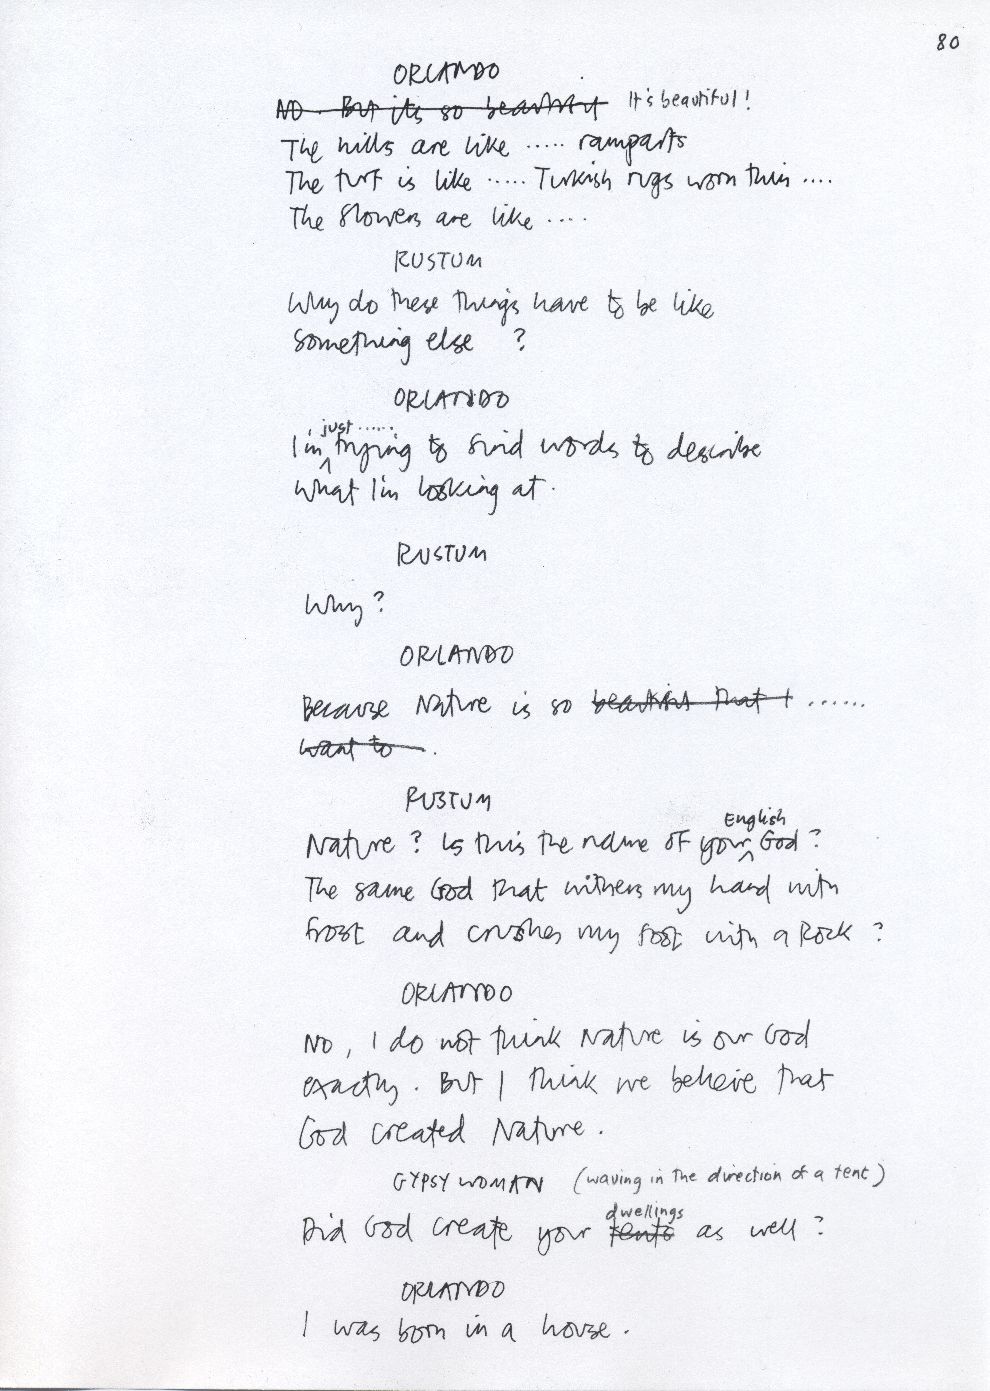 80
ORLANDO
No. But its so beautiful It's beautiful!
The hills are like ..... ramparts
The turf is like ..... Turkish rugs worn thin ....
The flowers are like ....
RUSTUM
Why do these things have to be like
something else ?
ORLANDO
just .....
I'm trying to find words to describe
what I'm looking at.
RUSTUM
Why?
ORLANDO
Because Nature is so beautiful that I ......
want to .
RUSTUM
English
Nature? Is this the name of your God?
The same God that withers my hand with
frost and crushes my foot with a Rock ?
ORLANDO
No, I do not think Nature is our God
exactly. But I think we believe that
God created Nature.
GYPSY WOMAN (waving in the direction of a tent)
dwellings
Did God create your tents as well?
ORLANDO
I was born in a house.